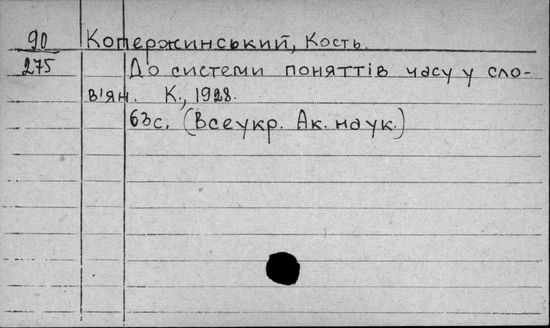 90 Копержинський, Кость.
275 До системи поняттів часу у сло-
в'ян. К., 1928.
63с. (Всеукр. Ак. наук.)